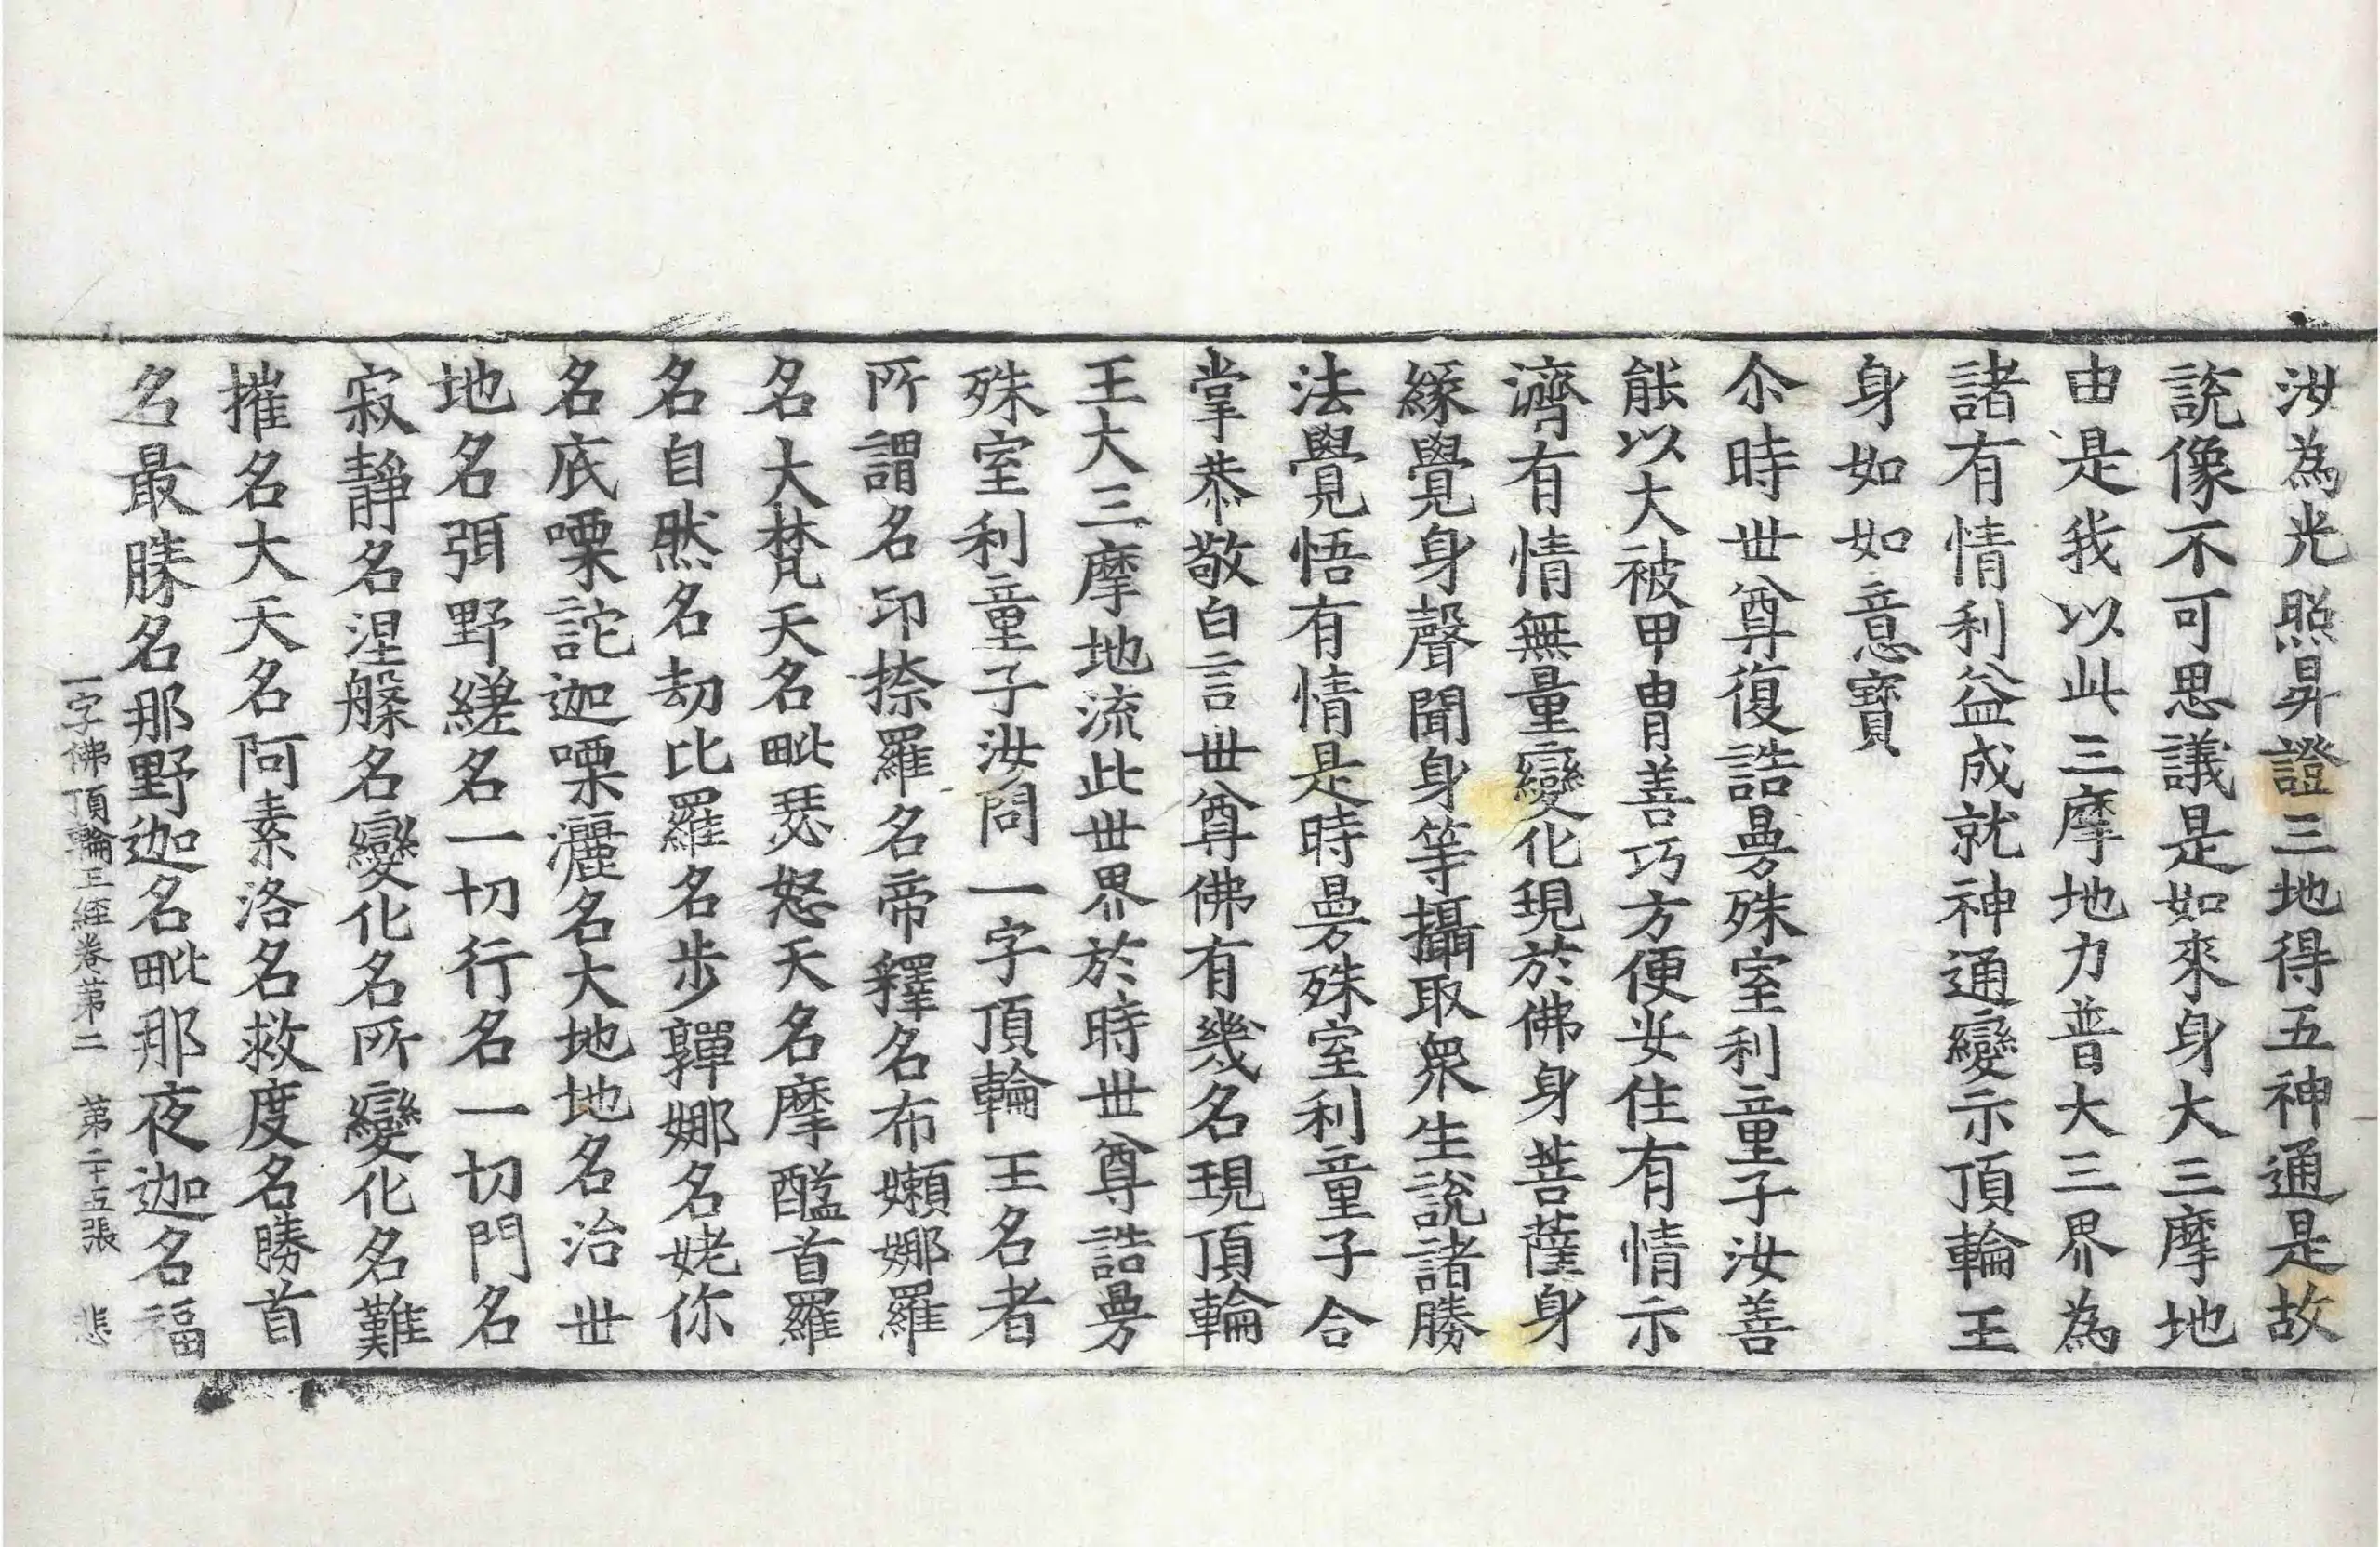 汝為光照昇證三地得五神通是故
說像不可思議是如來身大三摩地
由是我以此三摩地力普大三界為
諸有情利益成就神通變示頂輪王
身如如意寶
尒時世尊復誥曼殊室利童子汝善
能以大被甲冑善巧方便安住有情示
濟有情無量變化現於佛身菩薩身
緣覺身聲聞身等攝取衆生說諸勝
法覺悟有情是時曼殊室利童子合
掌恭敬白言世尊佛有幾名現頂輪
王大三摩地流此世界於時世尊誥曼
殊室利童子汝問一字頂輪王名者
所謂名印捺羅名帝釋名布嬾娜羅
名大梵天名毗瑟怒天名摩醯首羅
名自然名劫比羅名步鸅娜名姥你
名底㗚詑迦㗚灑名大地地名治世
地名弭野縒名一切行名一切門名
寂靜名涅槃名變化名所變化名難
摧名大天名阿素洛名救度名勝首
名最勝名那野迦名毗那夜迦名福
一字佛頂輪王經卷第二 第二十五張 悲